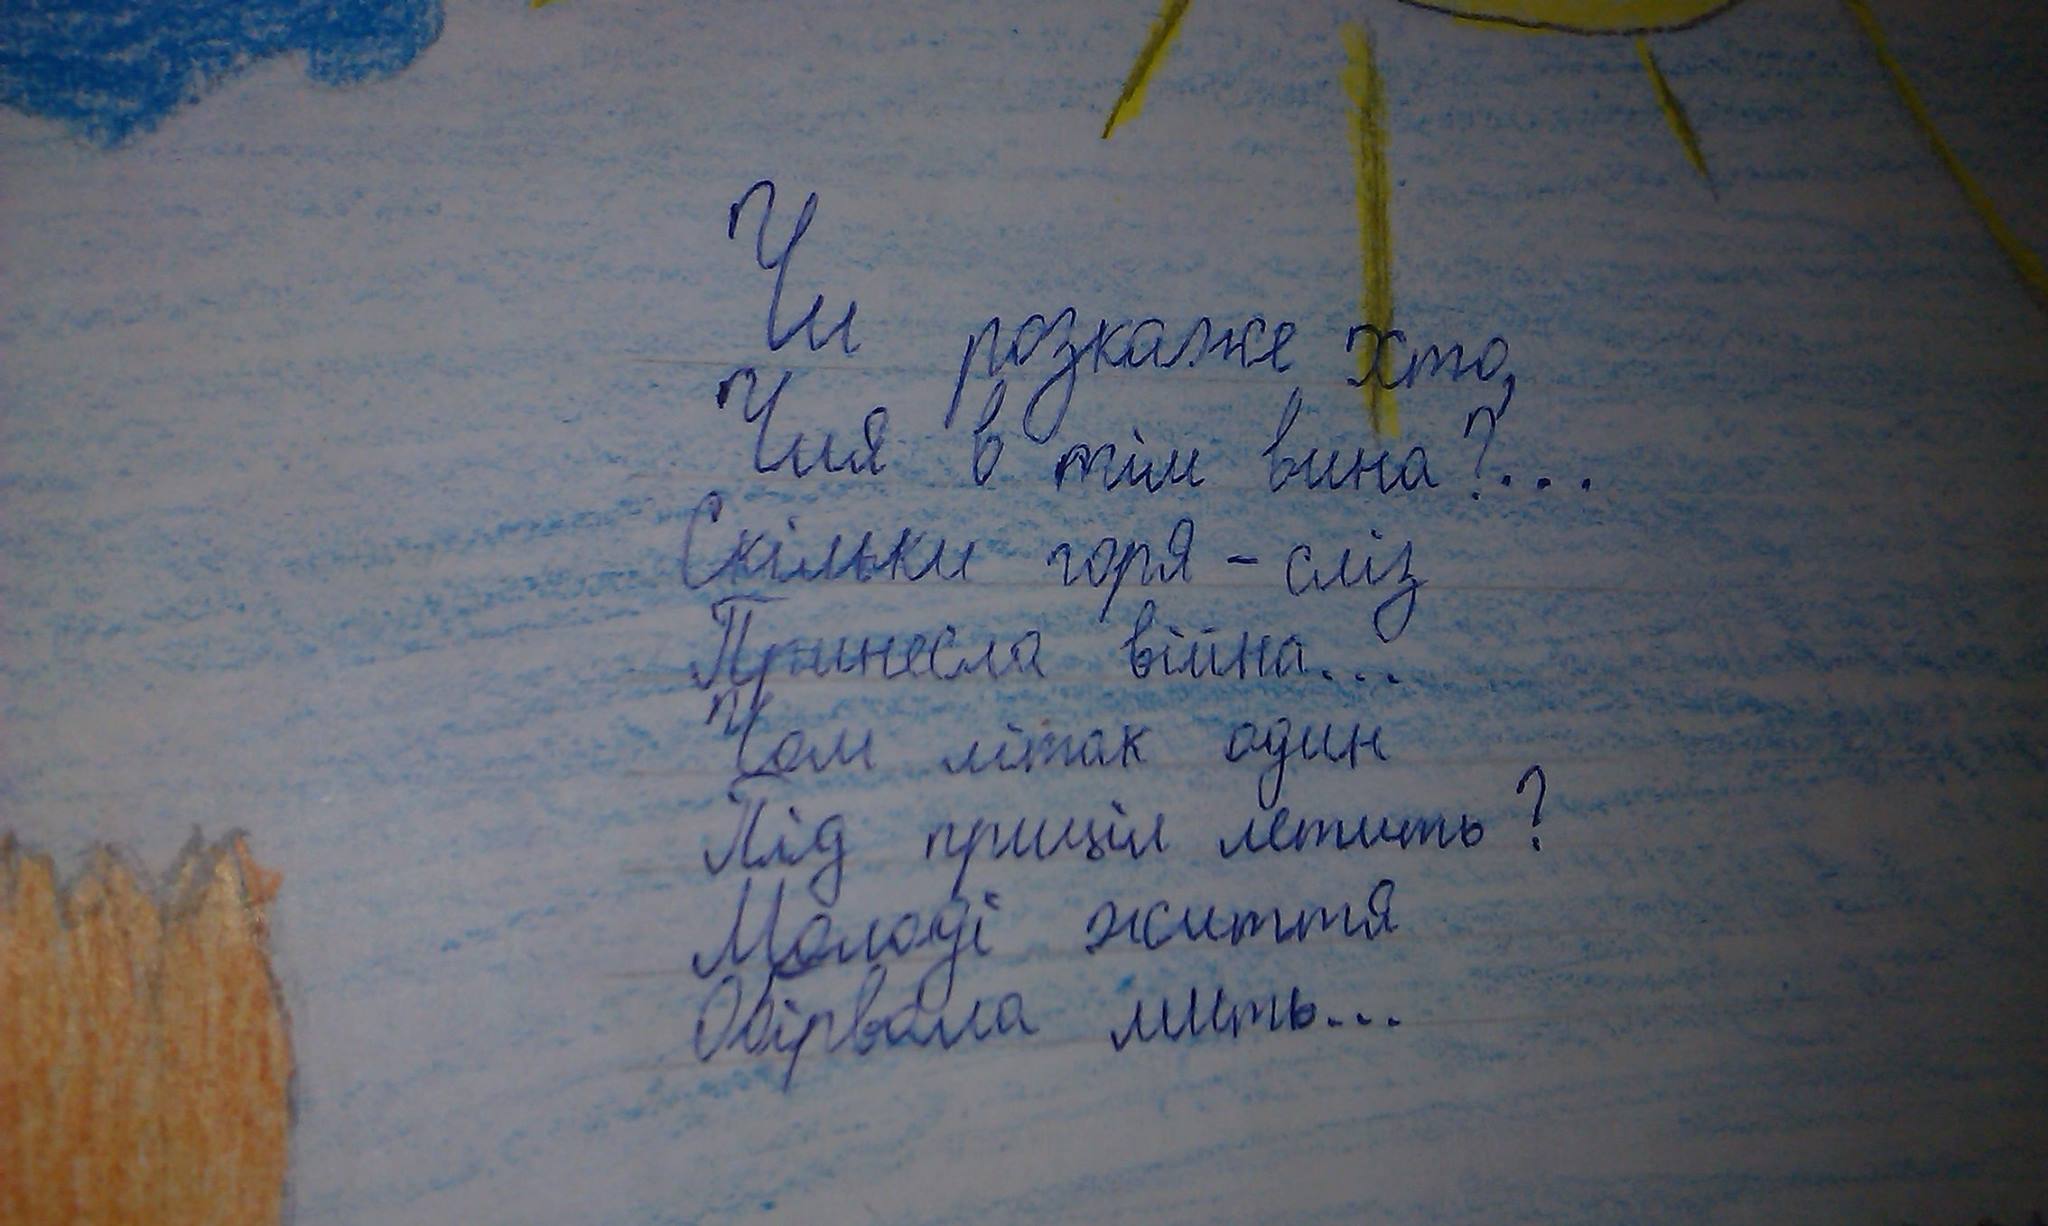 Чи розкаже хто,
Чия в тім вина?...
Скільки горя - сліз
Принесла війна...
Чом літак один
Під приціл летить?
Молоді життя
Обірвала мить...